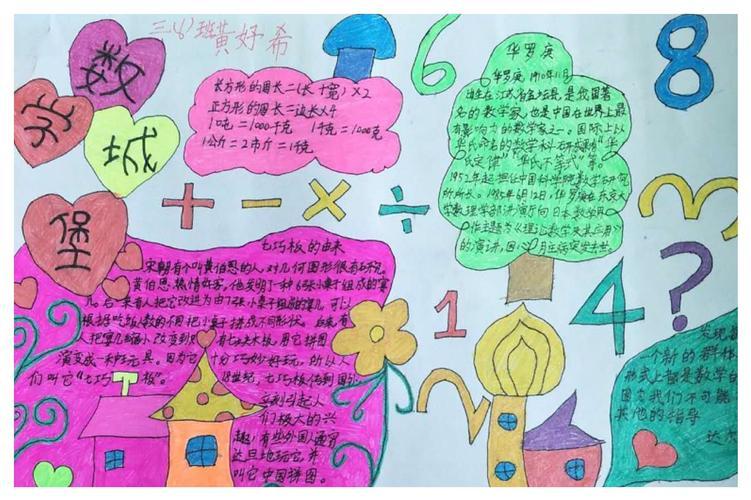 三(6)班黄妤希
数
学
城
堡
长方形的周长=(长+宽)×2
正方形的周长=边长×4
10吨=10000千克 1千克=1000克
1公斤=2市斤=1千克
+ - × ÷
6
8
3
1
4
2
?
华罗庚
华罗庚1910年11月
出生在江苏省金坛县,是我国著
名的数学家,也是中国在世界上最
有影响力的数学家之一。国际上以
华氏命名的数学科研成果有“华
氏定律”“华氏不等式”等。
1952年起担任中国科学院数学研究
所所长。1985年6月12日,华罗庚在东京大
学数理学部讲演厅向日本数学界
作主题为《理论数学及其应用》
的演讲,因心
七巧板的由来
宋朝有个叫黄伯思的人,对几何图形很有研究。
黄伯思热情好客,他发明了一种6张小桌子组成的宴
几,后来有人把它改进为由7张小桌子组成的宴几,可以
根据吃饭人数的不同,把小桌子拼成不同形状。后来,有
人把宴几缩小改变到 七块木板,用它拼图
演变成一种玩具。因为它十分巧妙好玩,所以人
们叫它“七巧板”。18世纪,七巧板传到国外
立刻引起人
们极大的兴
趣,有些外国人通宵
达旦地玩它,并
叫它中国拼图。
发现
一个新的群体
形式上都是数学
因为我们不可能
其他的指导
达尔